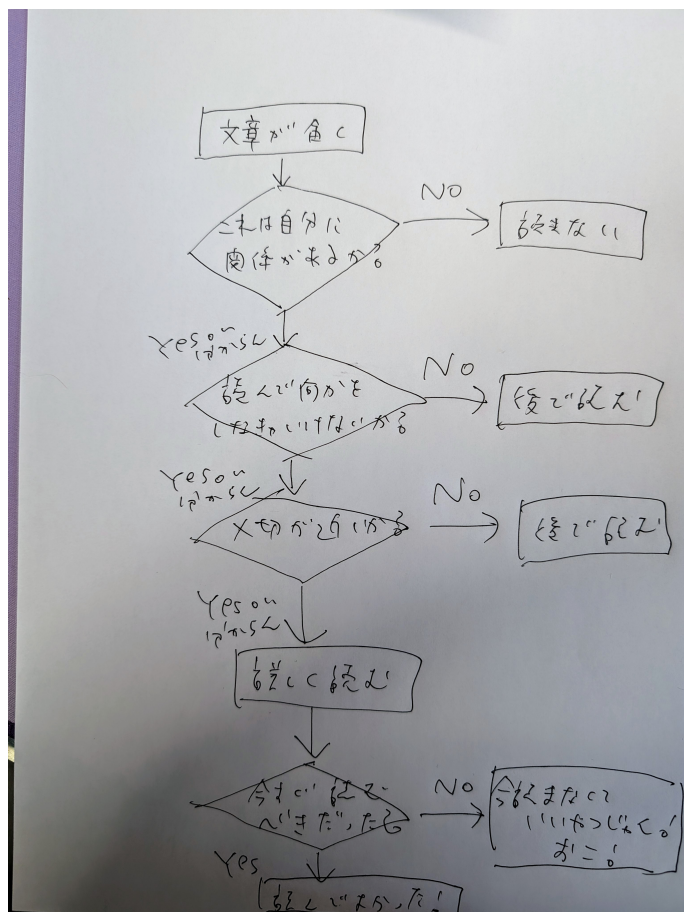 文章が届く
これは自分に
関係があるか?
NO
読まない
Yes or
わからん
読んで何かを
しなきゃいけないか?
No
後で読む
Yes or
わからん
〆切が近いか?
No
後で読む
Yes or
わからん
詳しく読む
今すぐ読む
べきだった?
NO
今読まなくて
いいやつじゃく!
おこ!
Yes
読んでよかった!